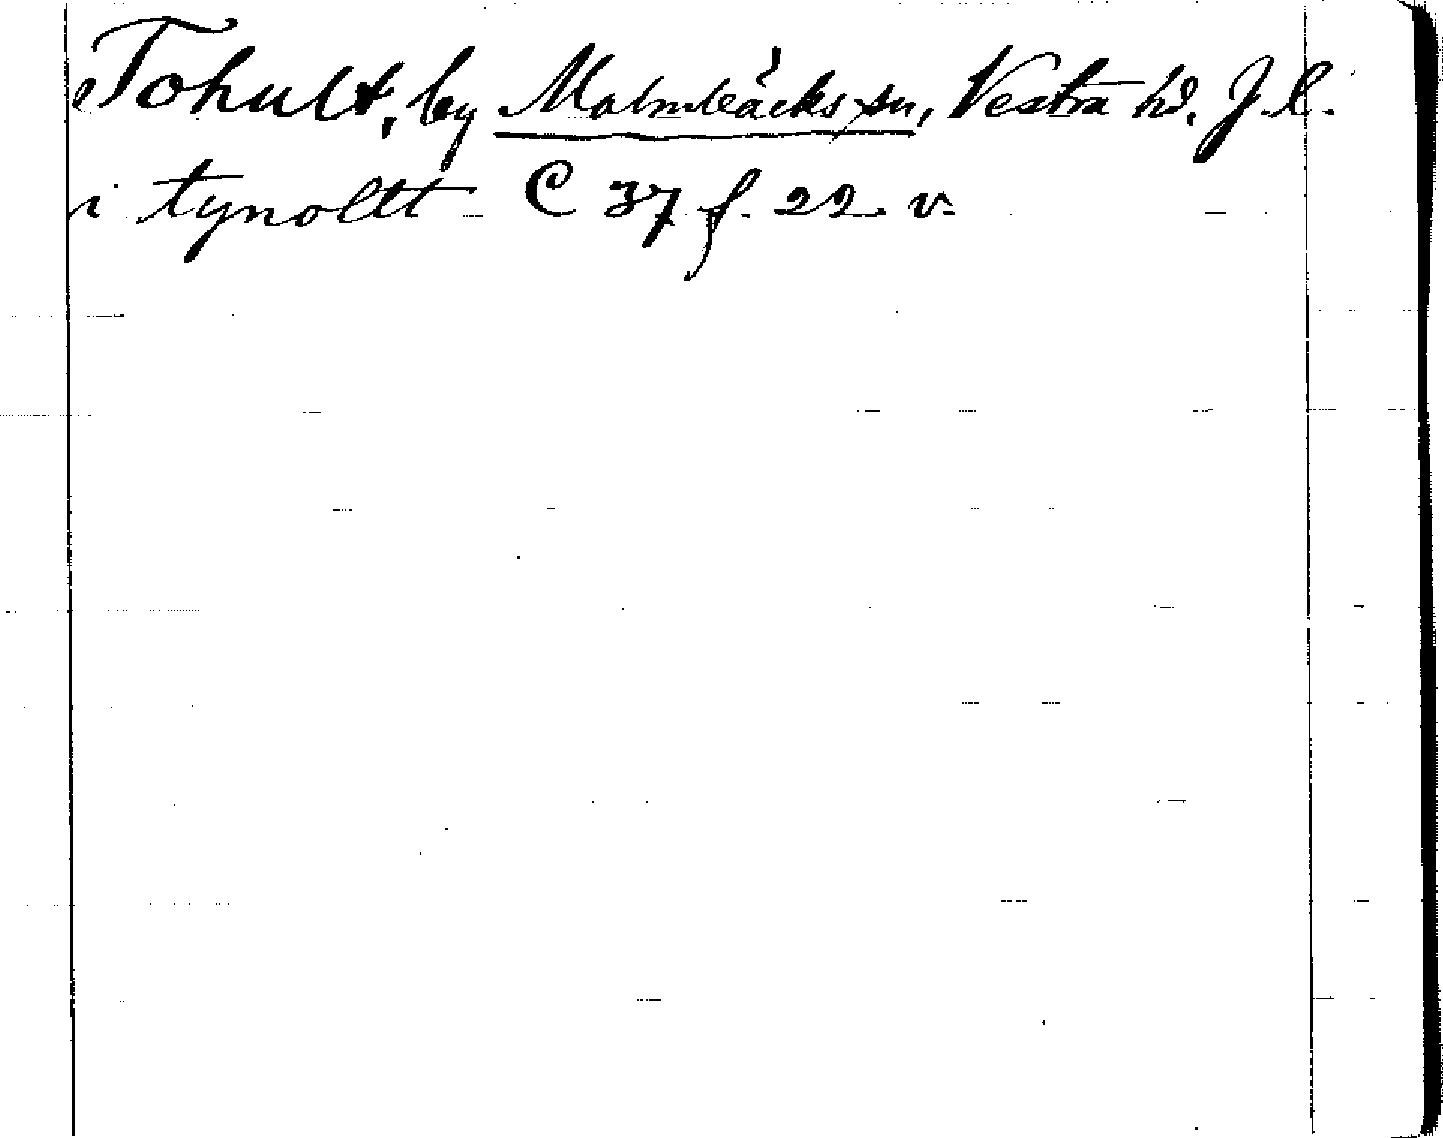 Tohult, by Malmbäcks sn, Vestra hd. J. l.
i tynoltt C 37 f. 22 v.